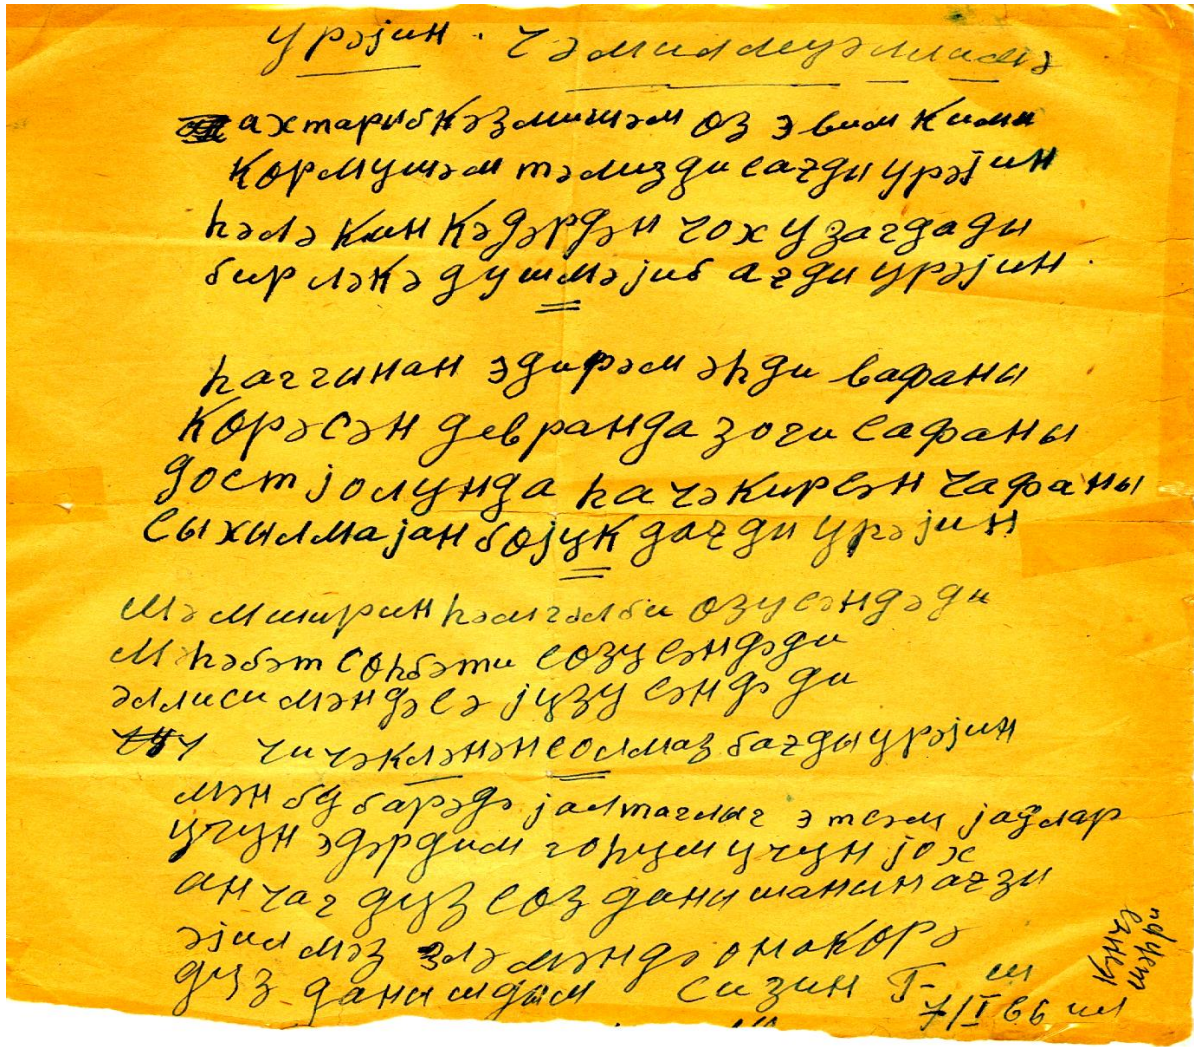 урәјин. ҹәмил муәллимә
ахтарыб кәзмишәм оз эвим кими
кормушәм тәмизди сағды урәјин
һәлә кин кәдәрдән чох узагдады
бир ләкә душмәјиб ағды урәјин.
һаггынан эдирәм әһди вафаны
корәсән девранда зоги сафаны
дост јолунда һа чәкирсән ҹафаны
сыхылмајан бојук дағды урәјин
мәм ширин һәм гәлби озу сәндәди
мһәбәт соһбәти созу сәндәди
әллиси мәндәсә јузу сәндәди
чичәкләнән солмаз бағды урәјин
мән бу барәдә јалтаглыг этсәм јадлар
учун эдәрдим гоһум учун јох
анҹаг дуз соз данышанын ағзи
әјилмәз элә мәндә она корә
дуз данышдым сизин
7/I 66 ил